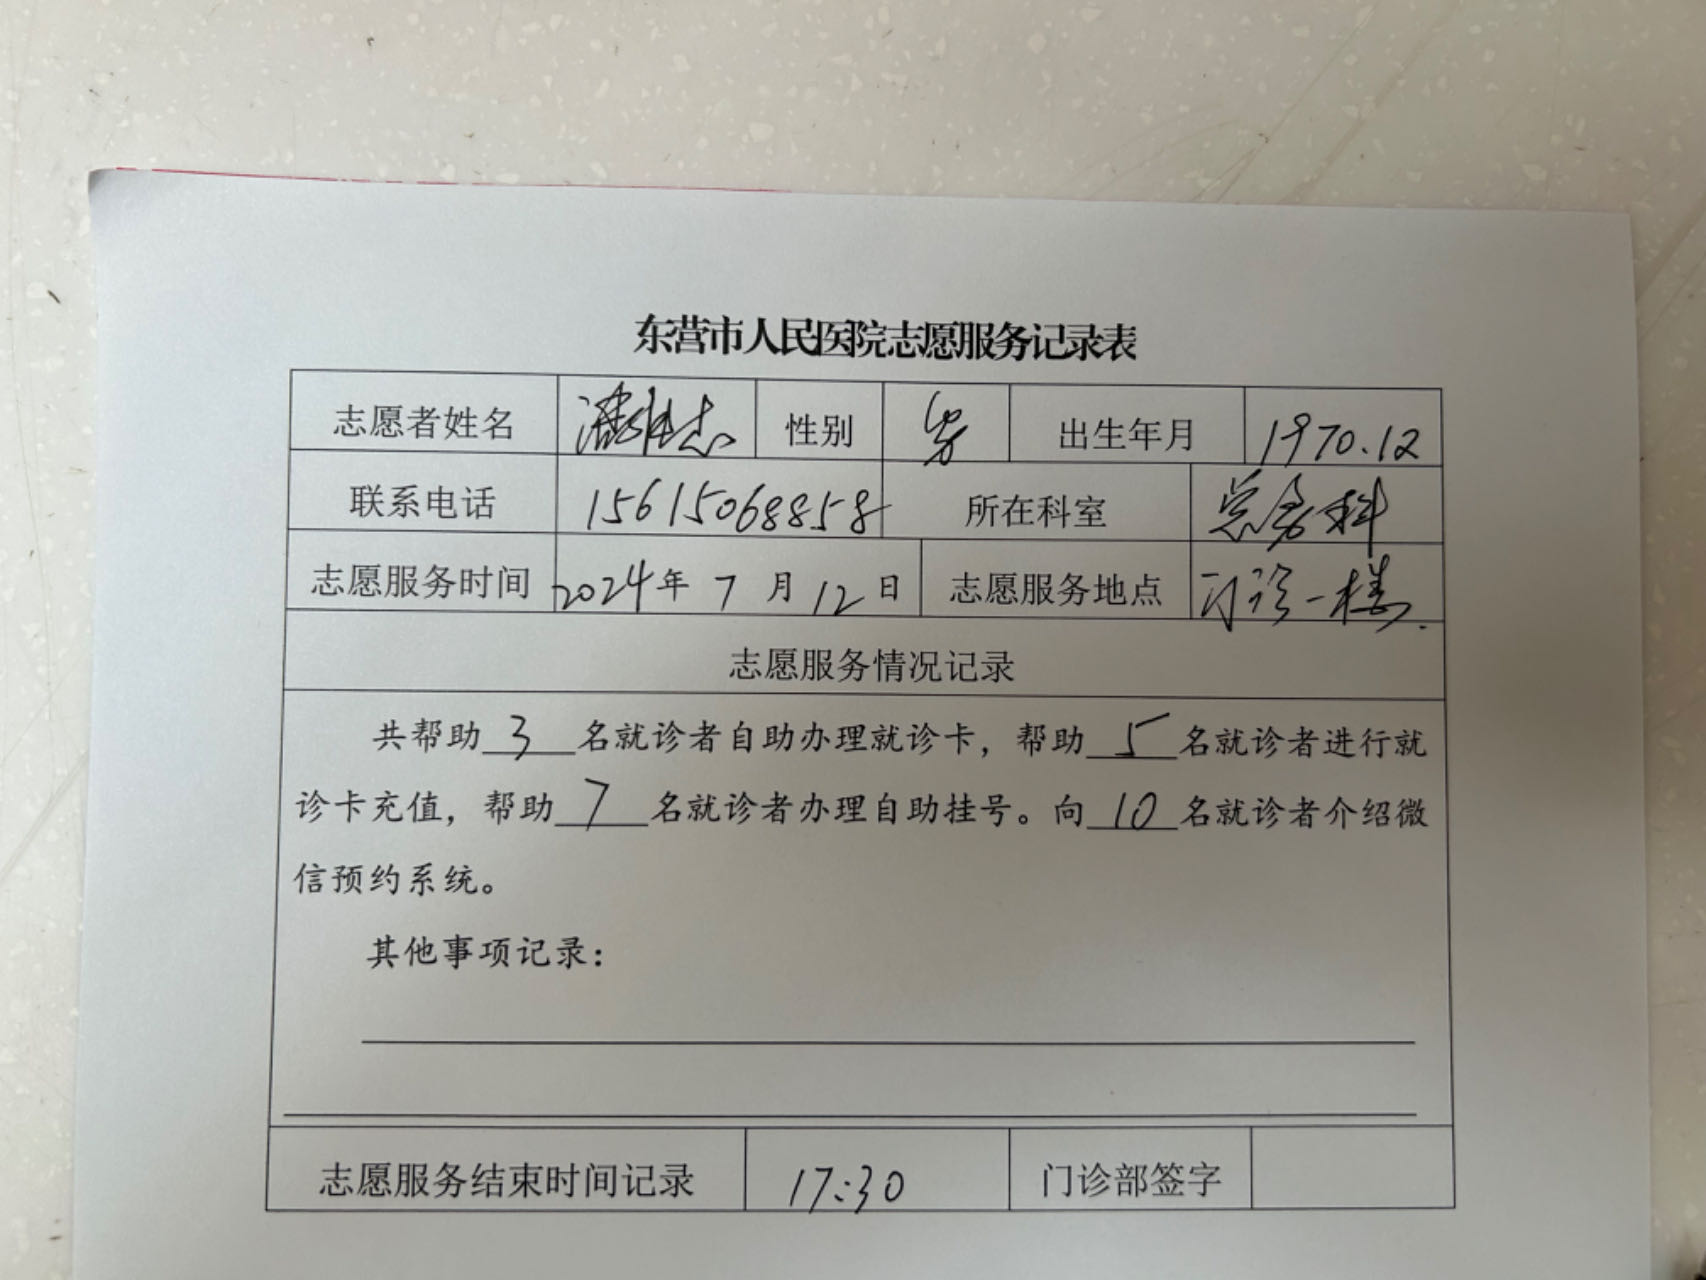 东营市人民医院志愿服务记录表
志愿者姓名 性别 男 出生年月 1970.12
联系电话 15615068858 所在科室 总务科
志愿服务时间 2024年 7 月 12 日 志愿服务地点 门诊一楼.
志愿服务情况记录
共帮助 3 名就诊者自助办理就诊卡，帮助 5 名就诊者进行就
诊卡充值，帮助 7 名就诊者办理自助挂号。向 10 名就诊者介绍微
信预约系统。
其他事项记录：
志愿服务结束时间记录 17:30 门诊部签字